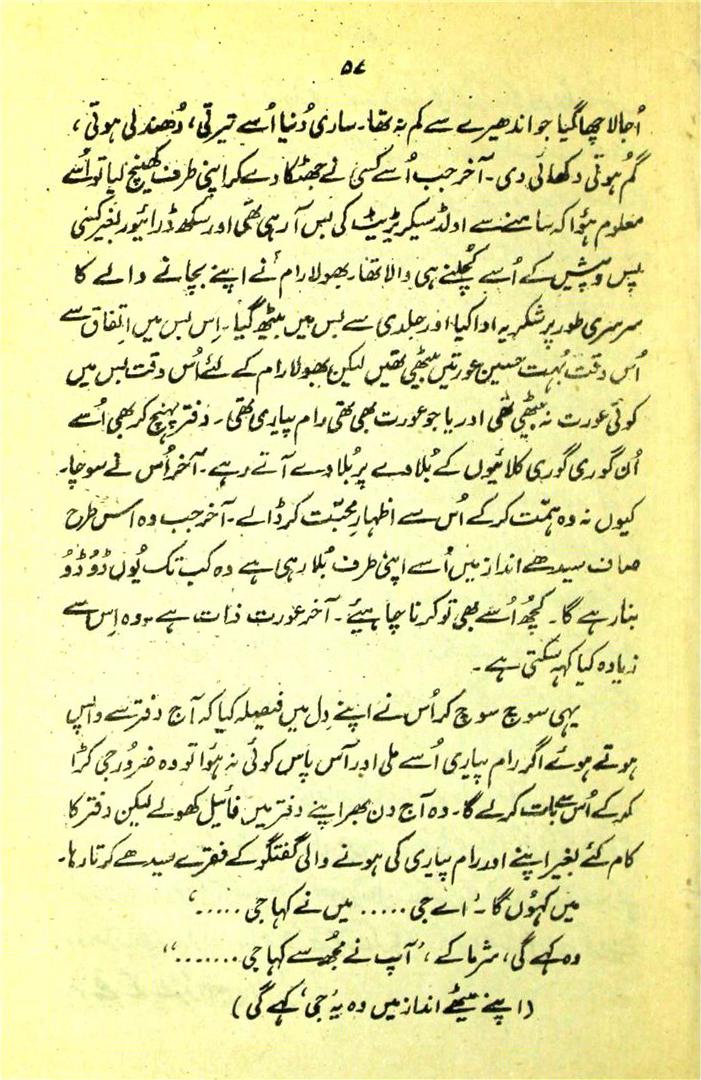 ۵۷
اُجالا چھا گیا جو اندھیرے سے کم نہ تھا۔ ساری دُنیا اُسے تیرتی، دُھندلی ہوتی،
گم ہوتی دکھائی دی۔ آخر جب اُسے کسی نے جھٹکا دے کر اپنی طرف کھینچ لیا تو اُسے
معلوم ہؤا کہ سامنے سے اولڈ سیکریٹریٹ کی بس آ رہی تھی اور سکھ ڈرائیور بغیر کسی
پس و پیش کے اُسے کُچلنے ہی والا تھا۔ بھولا رام نے اپنے بچانے والے کا
سرسری طور پر شکریہ ادا کیا اور جلدی سے بس میں بیٹھ گیا۔ اِس بس میں اتفاق سے
اُس وقت بہُت حسین عورتیں بیٹھی تھیں لیکن بھولا رام کے لئے اُس وقت بس میں
کوئی عورت نہ بیٹھی تھی اور یا جو عورت بھی تھی رام پیاری تھی۔ دفتر پہنچ کر بھی اُسے
اُن گوری گوری کلائیوں کے بُلاوے پر بُلاوے آتے رہے۔ آخر اُس نے سوچا۔
کیوں نہ وہ ہمّت کر کے اُس سے اظہارِ محبّت کر ڈالے۔ آخر جب وہ اس طرح
صاف سیدھے انداز میں اُسے اپنی طرف بُلا رہی ہے وہ کب تک یُوں ڈُو ڈُو
بنا رہے گا۔ کچھُ اُسے بھی تو کرنا چاہیئے۔ آخر عورت ذات ہے۔ وہ اِس سے
زیادہ کیا کہہ سکتی ہے۔
یہی سوچ سوچ کر اُس نے اپنے دِل میں فیصلہ کیا کہ آج دفتر سے واپس
ہوتے ہوئے اگر رام پیاری اُسے ملی اور آس پاس کوئی نہ ہؤا تو وہ ضرور جی کڑا
کر کے اُس سے بات کرلے گا۔ وہ آج دن بھر اپنے دفتر میں فائیل کھولے لیکن دفتر کا
کام کئے بغیر اپنے اور رام پیاری کی ہونے والی گفتگو کے فقرے سیدھے کرتا رہا۔
میں کہُوں گا۔ 'اے جی ..... میں نے کہا جی .....'
وہ کہے گی، شرما کے، 'آپ نے مجھُ سے کہا جی .......''
(اپنے میٹھے انداز میں وہ یہ 'جی' کہے گی)